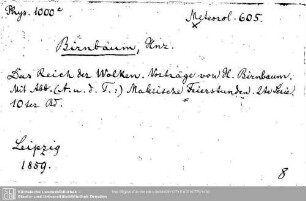 Phys. 1000 c
Meteorol. 605.
Birnbaum, Hnr.
Das Reich der Wolken. Vorträge von H. Birnbaum.
Mit Abb. (A. u. d. T.:) Malerische Feierstunden. 2te Serie
10ter Bd.
Leipzig
1859.
8
Sächsische Landesbibliothek -
Staats- und Universitätsbibliothek Dresden